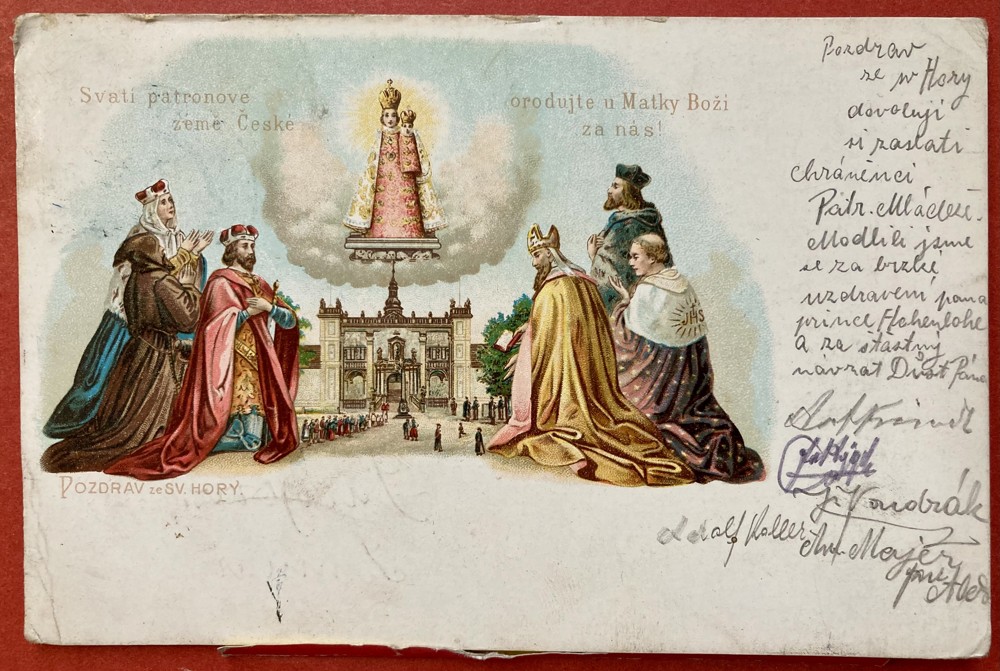 Svatí patronove
země České
orodujte u Matky Boží
za nás!
JHS
POZDRAV ze SV. HORY.
Pozdrav
ze sv Hory
dovolují
si zaslati
chráněnci
Patr. Mládeže.
Modlili jsme
se za brzké
uzdravení pana
prince Hohenlohe
a za stastny
návrat Důst. Pána
J. Vondrák
Adolf Koller
Ant. Majer